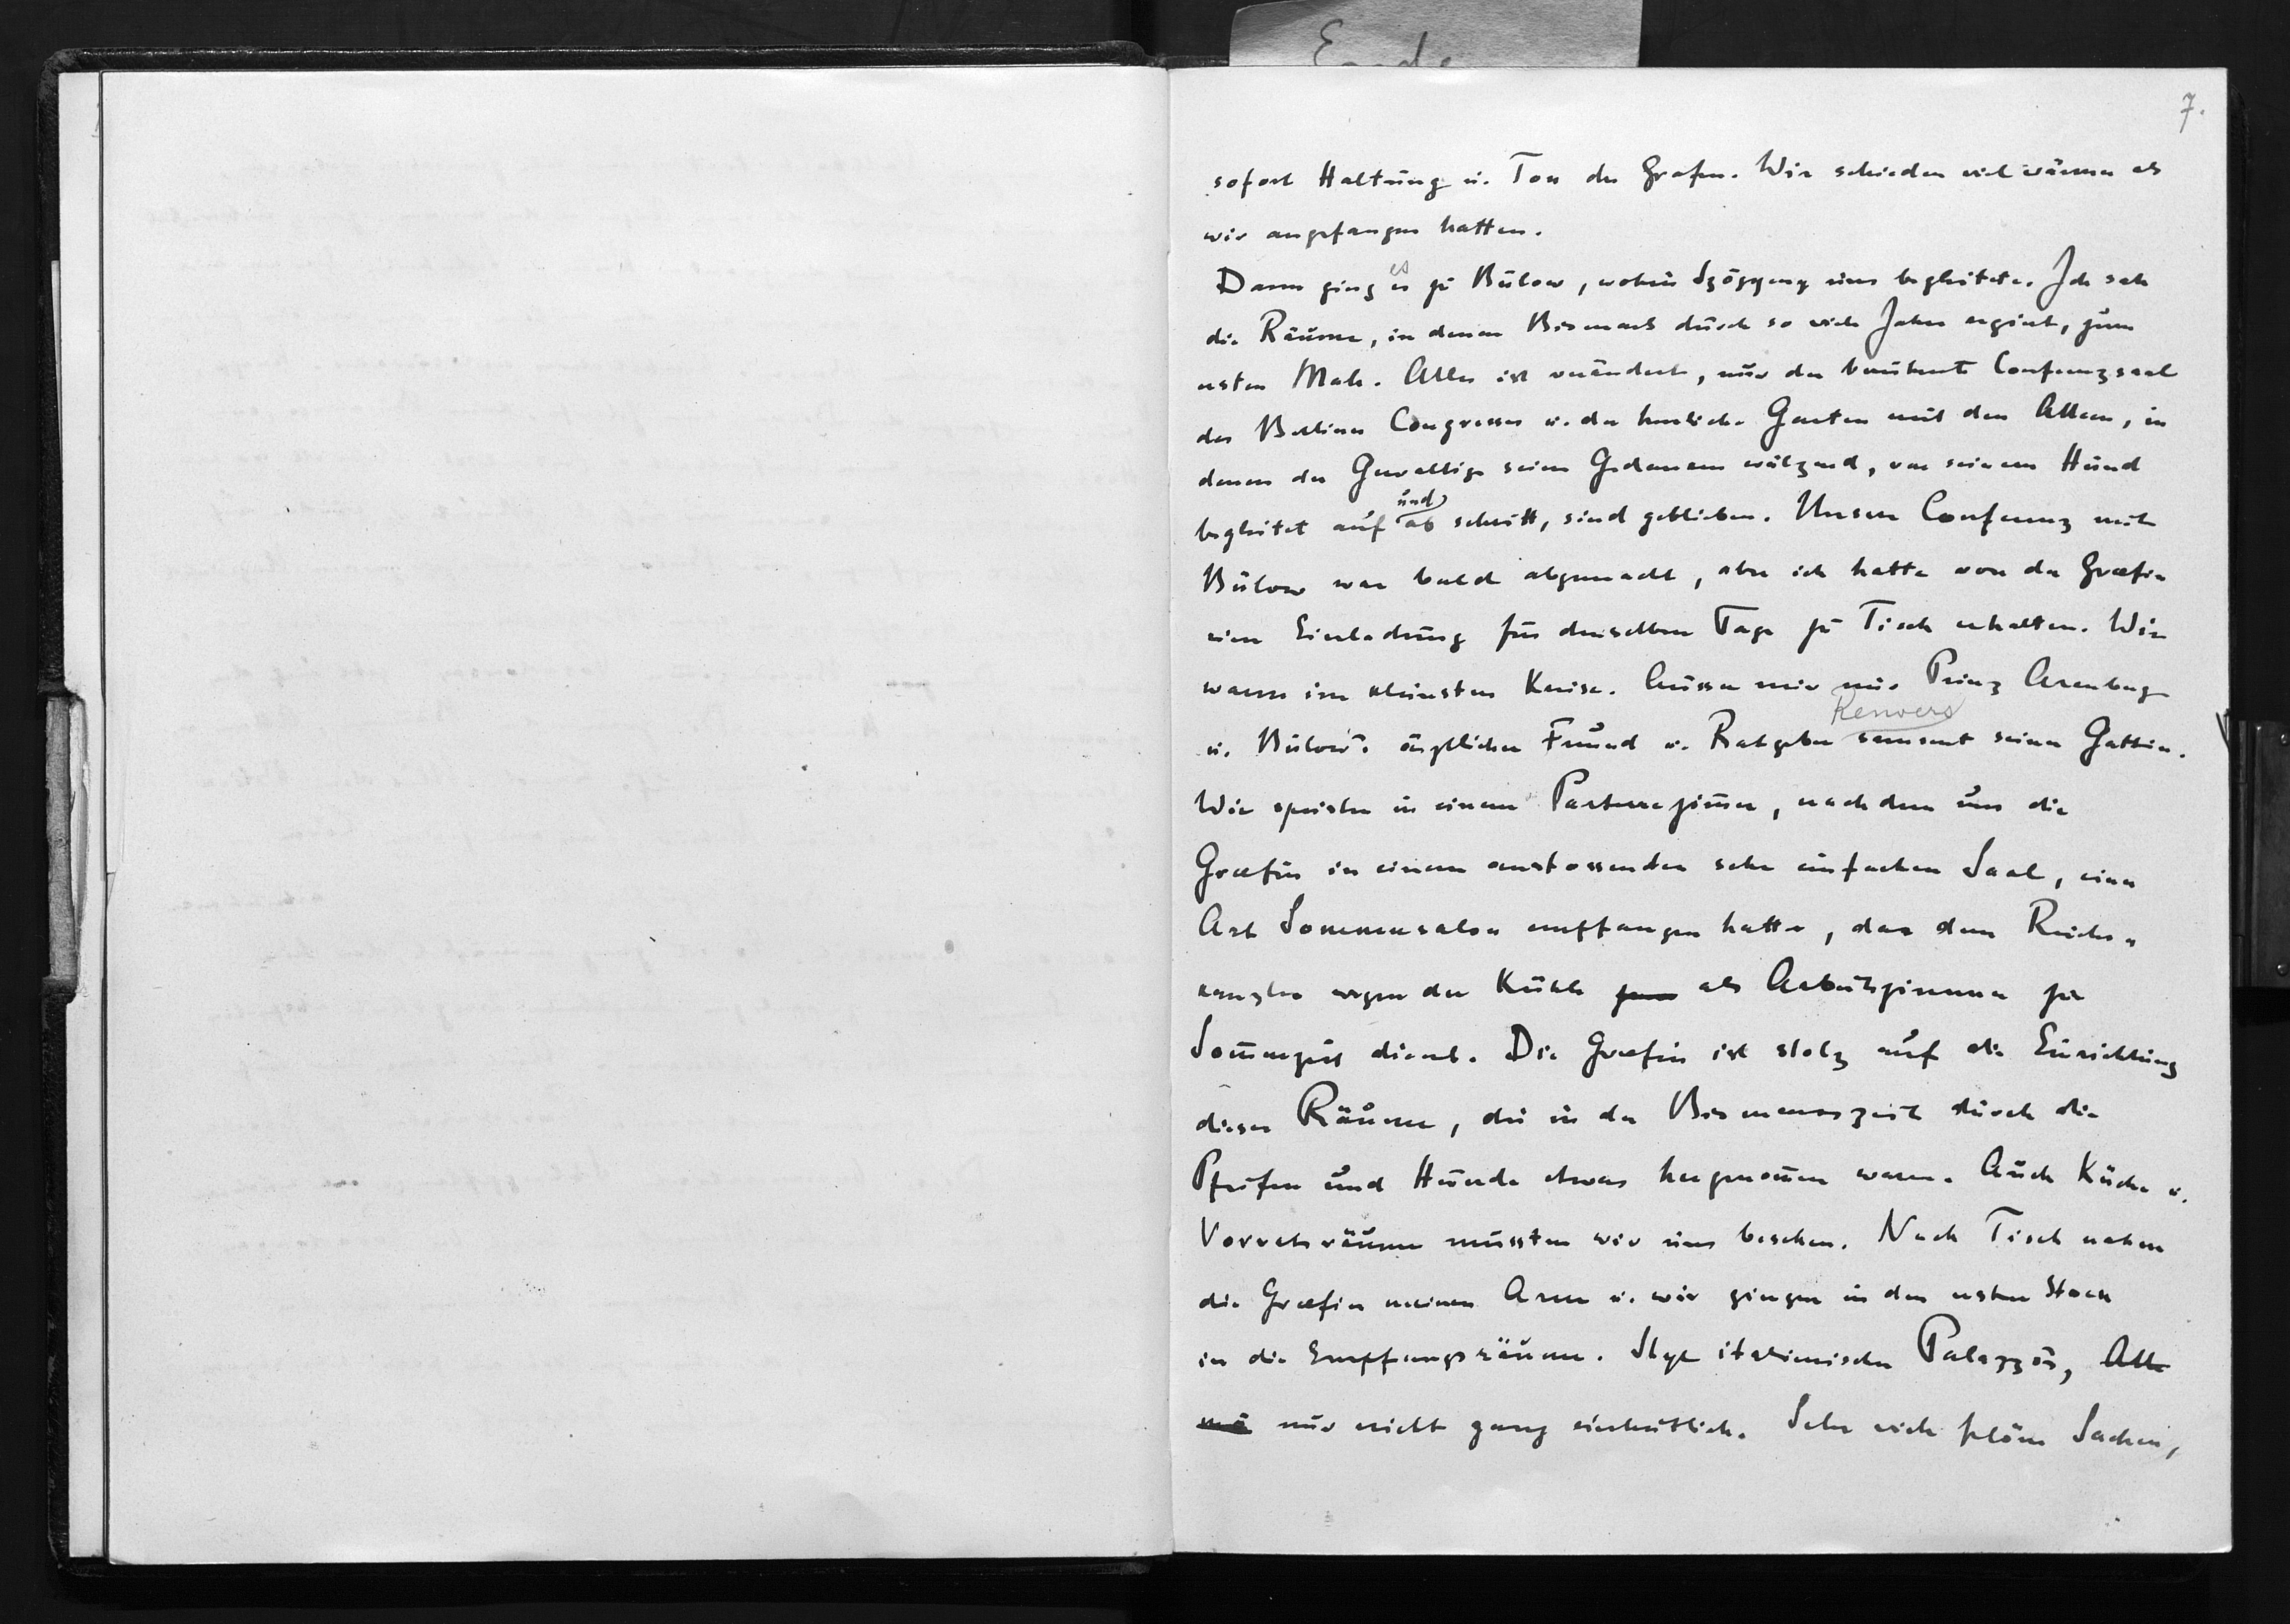 Ende
7.
sofort Haltung u. Ton des Grafen. Wir schieden viel wärmer als
wir angefangen hatten.
Dann ging es zu Bülow, wohin Szögyeny uns begleitete. Ich sah
die Räume, in denen Bismarck durch so viele Jahre regiert, zum
ersten Male. Alles ist verändert, nur der berühmte Conferenzsaal
des Berliner Congresses u. der herrliche Garten mit den Alleen, in
denen der Gewaltige seine Gedanken wälzend, von seinem Hund
begleitet auf und ab schritt, sind geblieben. Unsere Conferenz mit
Bülow war bald abgemacht, aber ich hatte von der Gräfin
eine Einladung für denselben Tage zu Tisch erhalten. Wir
waren im kleinsten Kreise. Ausser mir nur Prinz Arenberg
u. Bülow's ärztlicher Freund u. Ratgeber Renvers sammt seiner Gattin.
Wir speisten in einem Parterrezimer, nachdem uns die
Graefin in einem anstossenden sehr einfachen Saal, einer
Art Sommersalon empfangen hatte, der dem Reichs-
kanzler wegen der Kühle als Arbeitszimmer zur
Somerzeit dient. Die Graefin ist stolz auf die Einrichtung
dieser Räume, die in der Bismarckzeit durch die
Pfeifen und Hunde etwas hergenomen waren. Auch Küche u.
Vorratsräume mussten wir uns besehen. Nach Tisch nahm
die Graefin meinen Arm u. wir gingen in den ersten Stock
in die Empfangsräume. Styl italienischer Palazzos, Alle
nur nicht ganz einheitlich. Sehr viele schöne Sachen,